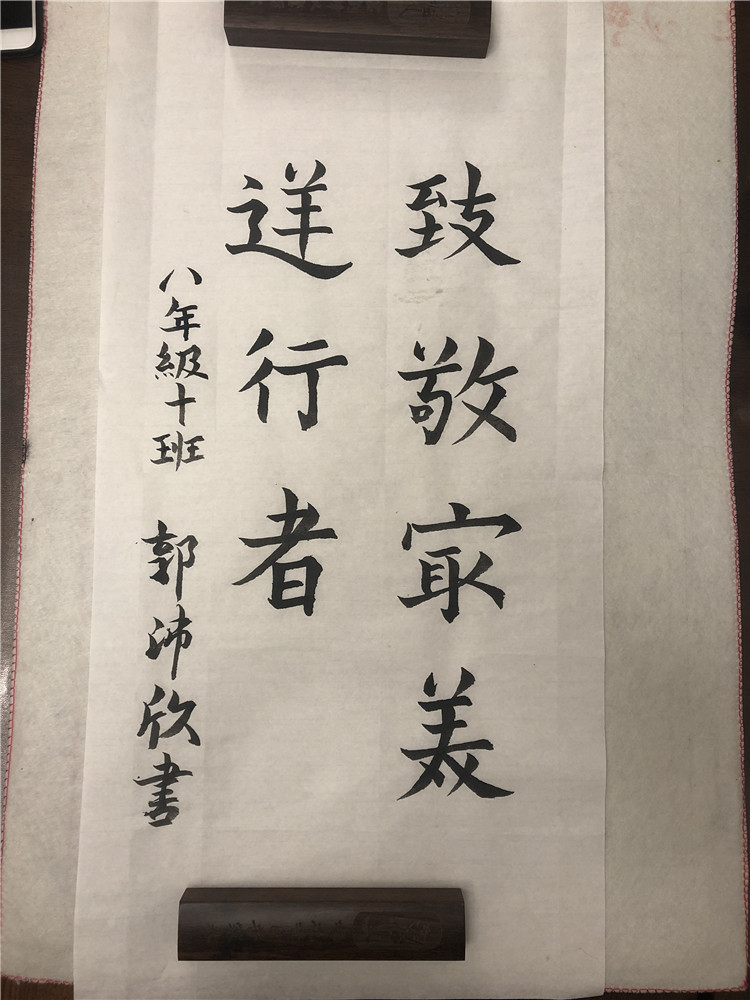 致敬㝡美
逆行者
八年級十班 郭沛欣書